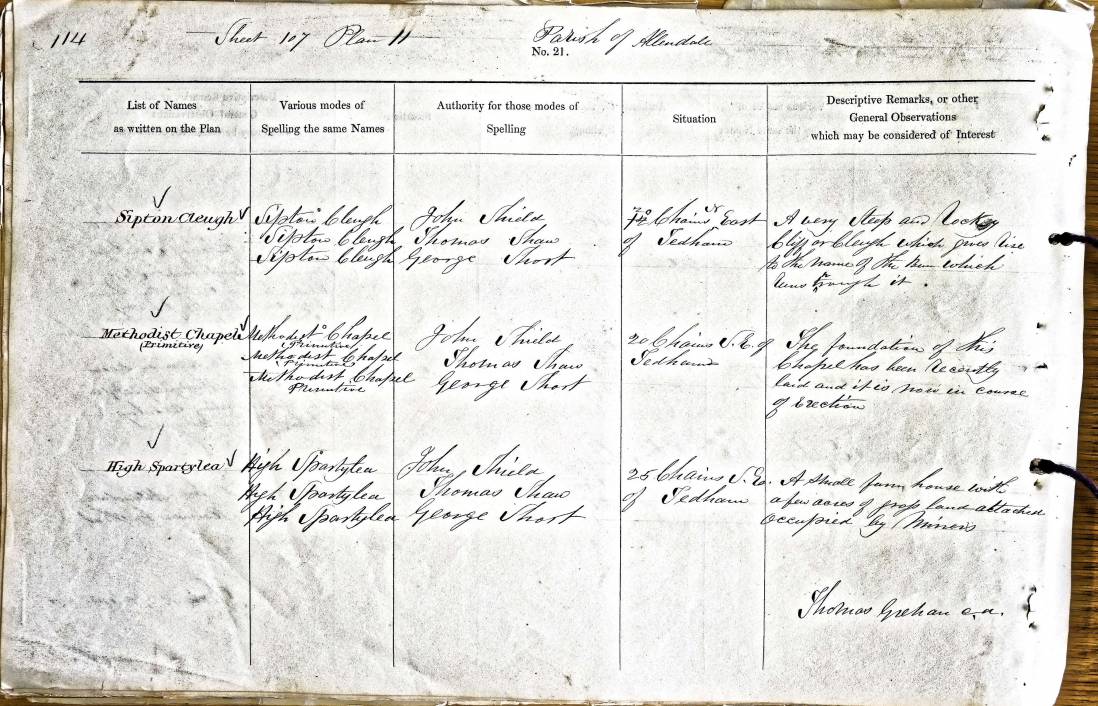 114
Sheet 107 Plan 11
Parish of Allendale
No. 21.
List of Names
as written on the Plan
Various modes of
Spelling the same Names
Authority for those modes of
Spelling
Situation
Descriptive Remarks, or other
General Observations
which may be considered of Interest
Sipton Cleugh
Sipton Cleugh
Sipton Cleugh
Sipton Cleugh
John Shield
Thomas Shaw
George Short
Chains N East
of Tedham
A very Steep and Rockey
Cliff or Cleugh which gives rise
to the name of the which
runs through it.
Methodist Chapel
(Primitive)
Methodist Chapel
(Primitive)
Methodist Chapel
(Primitive)
Methodist Chapel
Primitive
John Shield
Thomas Shaw
George Short
20 Chains S. E. of
Tedham
The foundation of this
Chapel has been recently
laid and it is now in course
of Erection
High Spartylea
High Spartylea
High Spartylea
High Spartylea
John Shield
Thomas Shaw
George Short
25 Chains S. W.
of Tedham
A small farm house with
a few acres of grass land attached
occupied by Miners
Thomas c.a.